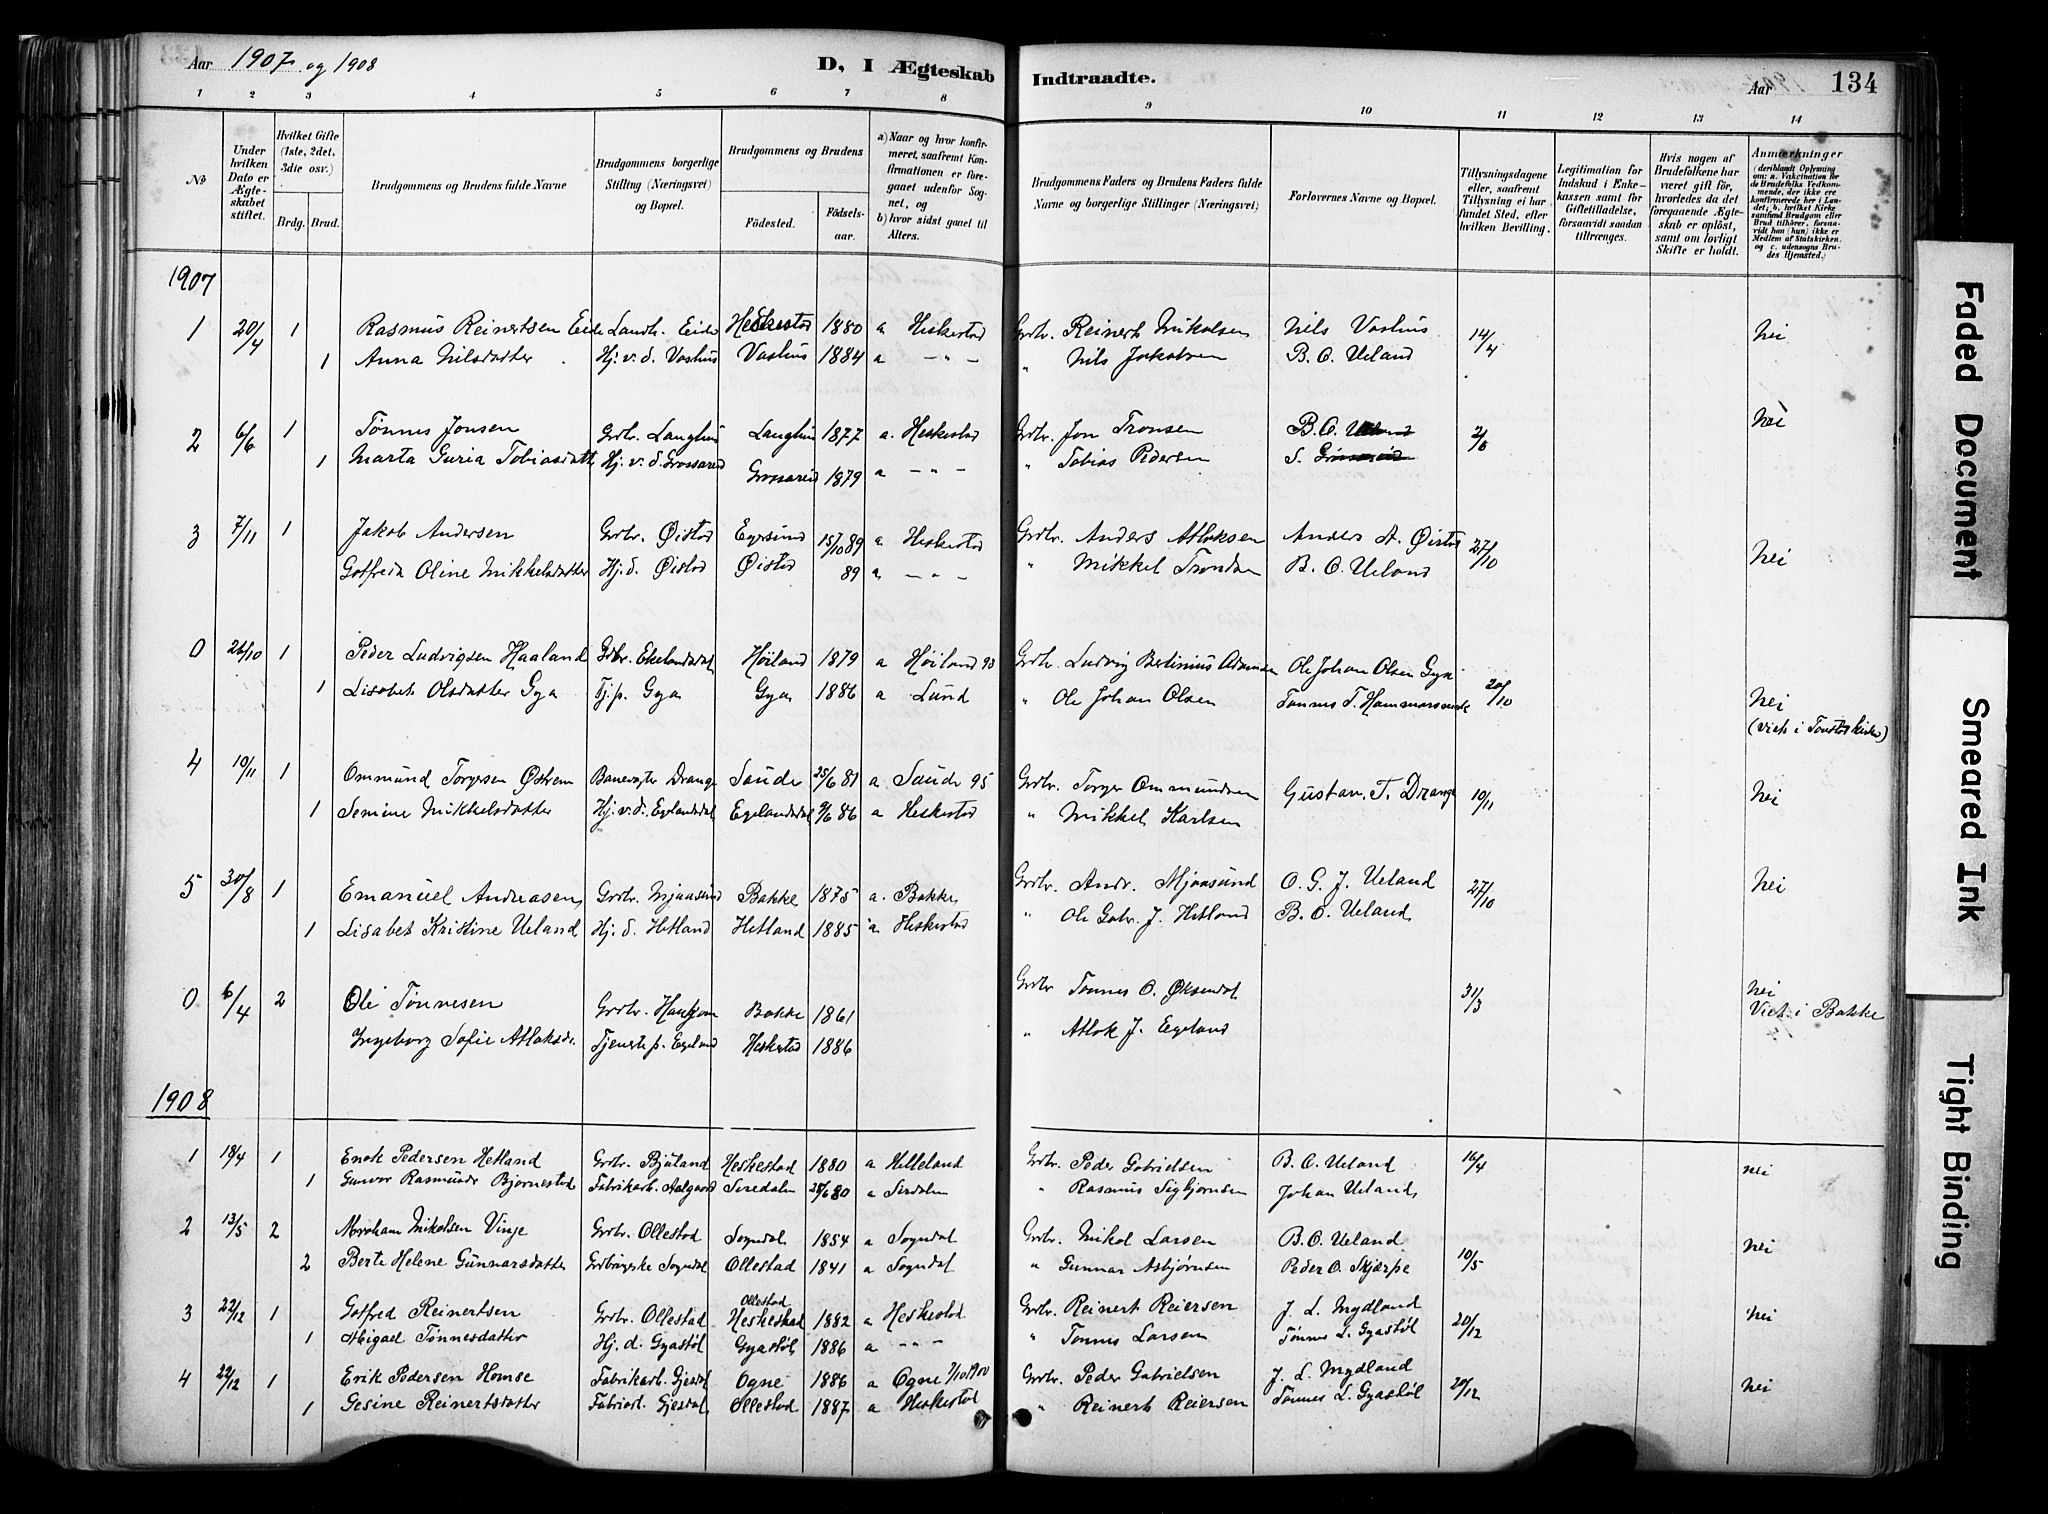 Aar 1907 og 1908
D, I Ægteskab Indtraadte.
Aar
134
1 2 3 4 5 6 7 8 9 10 11 12 13 14
No
Under hvilken Dato er Ægteskabet stiftet.
Hvilket Gifte (1ste, 2det, 3die osv.)
Brdg. Brud.
Brudgommens og Brudens fulde Navne
Brudgommens borgerlige Stilling (Næringsvei) og Bopæl.
Brudgommens og Brudens
Fødested.
Fødsels-aar.
a) Naar og hvor konfirmeret, saafremt Konfirmationen er foregaaet udenfor Sognet, og
b) hvor sidst gaaet til Alters.
Brudgommens Faders og Brudens Faders fulde Navne og borgerlige Stillinger (Næringsvei)
Forlovernes Navne og Bopæl.
Tillysningsdagene eller, saafremt Tillysning ei har fundet Sted, efter hvilken Bevilling.
Legitimation for Indskud i Enkekassen samt for Giftetilladelse, forsaavidt saadan tiltrænges.
Hvis nogen af Brudefolkene har været gift før, hvorledes da det foregaaende Ægteskab er opløst, samt om lovligt Skifte er holdt.
Anmærkninger
(deriblandt Oplysning om: a. Vakcination for de Brudefolks Vedkommende, der ikke ere konfirmerede her i Landet; b. hvilket Kirkesamfund Brudgom eller Brud tilhører, forsaavidt han (hun) ikke er Medlem af Statskirken, og c. udensogns Brudes Hjemsted.)
1907
1 20/4 1 Rasmus Reinertsen Eide Landh. Eide Heskestad 1880 a Heskestad Grdbr. Reinert Mikalsen Nils Vashus 14/4 Nei
1 Anna Nilsdatter Hj. v. d. Vashus Vashus 1884 a — " — " Nils Jakobsen B. O. Ueland
2 6/6 1 Tønnes Jonsen Grdbr. Langhus Langhus 1877 a. Heskestad Grdbr. Jon Tronsen B. O. Ueland 2/6 Nei
1 Marta Guria Tobiasdatt Hj. v. d. Grossareid Grossareid 1879 a — " — " Tobias Pedersen S.
3 7/11 1 Jakob Andersen Grdbr. Øistad Egersund 15/10 89 a Heskestad Grdbr. Anders Atlaksen Anders A. Øistad 27/10 Nei
Gotfreda Oline Mikkelsdatter Hj. d. Øistad Øistad 89 a — " — " Mikkel Trondsen B. O. Ueland
0 26/10 1 Peder Ludvigsen Haaland Grdbr. Ekelandsdal Høiland 1879 a Høiland 93 Grdbr. Ludvig Bertinius Adamsen Ole Johan Olsen Gya 20/10
1 Lisabet Olsdatter Gya Tj. p. Gya Gya 1886 a Lund " Ole Johan Olsen Tønnes T. Hammarsmark Nei
(Viet i Tonstad kirke)
4 10/11 1 Ommund Torgersen Østrem Banevogter Drange Saude 25/6 81 a Saude 95 Grdbr. Torger Ommundsen Gustav. T. Drange 10/11 Nei
1 Semine Mikkelsdatter Hj. v. d. Egelandsdal Egelandsdal 9/6 86 a Heskestad " Mikkel Karlsen
5 30/8 1 Emanuel Andreasen Grdbr. Mjaasund Bakke 1875 a. Bakke Grdbr. Andr. Mjaasund O. G. J. Ueland 27/10 Nei
1 Lisabet Kristine Ueland Hj. d. Hetland Hetland 1885 a Heskestad " Ole Gabr. J. Hetland B. O. Ueland
0 6/4 2 Ole Tønnesen Grdbr. Haughom Bakke 1861 Grdbr Tønnes O. Øksendal 31/3 Nei
Ingeborg Sofie Atlaksdr. Tjeneste p. Egeland Heskestad 1886 " Atlak J. Egeland Viet i Bakke
1908
1 18/4 1 Enok Pedersen Hetland Grdbr. Bjuland Heskestad 1880 a Helleland Grdbr. Peder Gabrielsen B. O. Ueland 16/4 nei
1 Gunvor Rasmusdr Bjørnestad Fabrikarb. Aalgaard Siredalen 28/6 80 a Sirdalen " Rasmus Sigbjørnsen Johan Ueland
2 13/5 2 Abraham Mikalsen Vinje Grdbr. Ollestad Sogndal 1854 a Sogndal Grdbr. Mikal Larsen B. O. Ueland 10/5 Nei
2 Berte Helene Gunnarsdatter Grdbrugske Sogndal Ollestad 1841 a Sogndal " Gunnar Asbjørnsen Peder O. Skjærpe
3 22/12 1 Gotfred Reinertsen Grdbr. Ollestad Ollestad Heskestad 1882 a Heskestad Grdbr. Reinert Reiersen J. L. Mydland 20/12 Nei
1 Abigael Tønnesdatter Hj. d. Gyastøl Gyastøl 1886 a — " — " Tønnes Larsen Tønnes L. Gyastøl
4 22/12 1 Erik Pedersen Homse Fabrikarb. Gjesdal Ogne 1886 a Ogne 7/10 1900 Grdbr. Peder Gabrielsen J. L. Mydland 20/12 Nei
1 Gesine Reinertsdatter Fabriarb. Gjesdal Ollestad 1887 a Heskestad " Reinert Reiersen Tønnes L. Gyastøl
Faded Document
Smeared Ink
Tight Binding